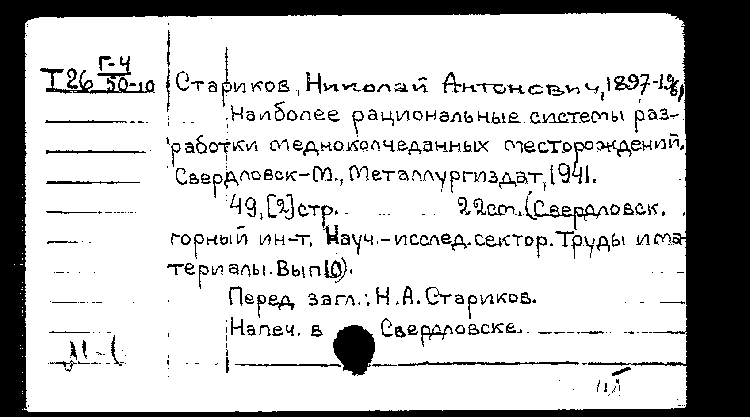 Т26 Г-4/50-10 Стариков, Николай Антонович, 1897-196,
Наиболее рациональные системы раз-
работки медноколчеданных месторождений.
Свердловск-М., Металлургиздат, 1941.
49, [2] стр. 22 см. (Свердловск.
горный ин-т. Науч.-исслед. сектор. Труды и ма-
териалы. Вып 10).
Перед загл.: Н.А. Стариков.
Напеч. в Свердловске.
М-1